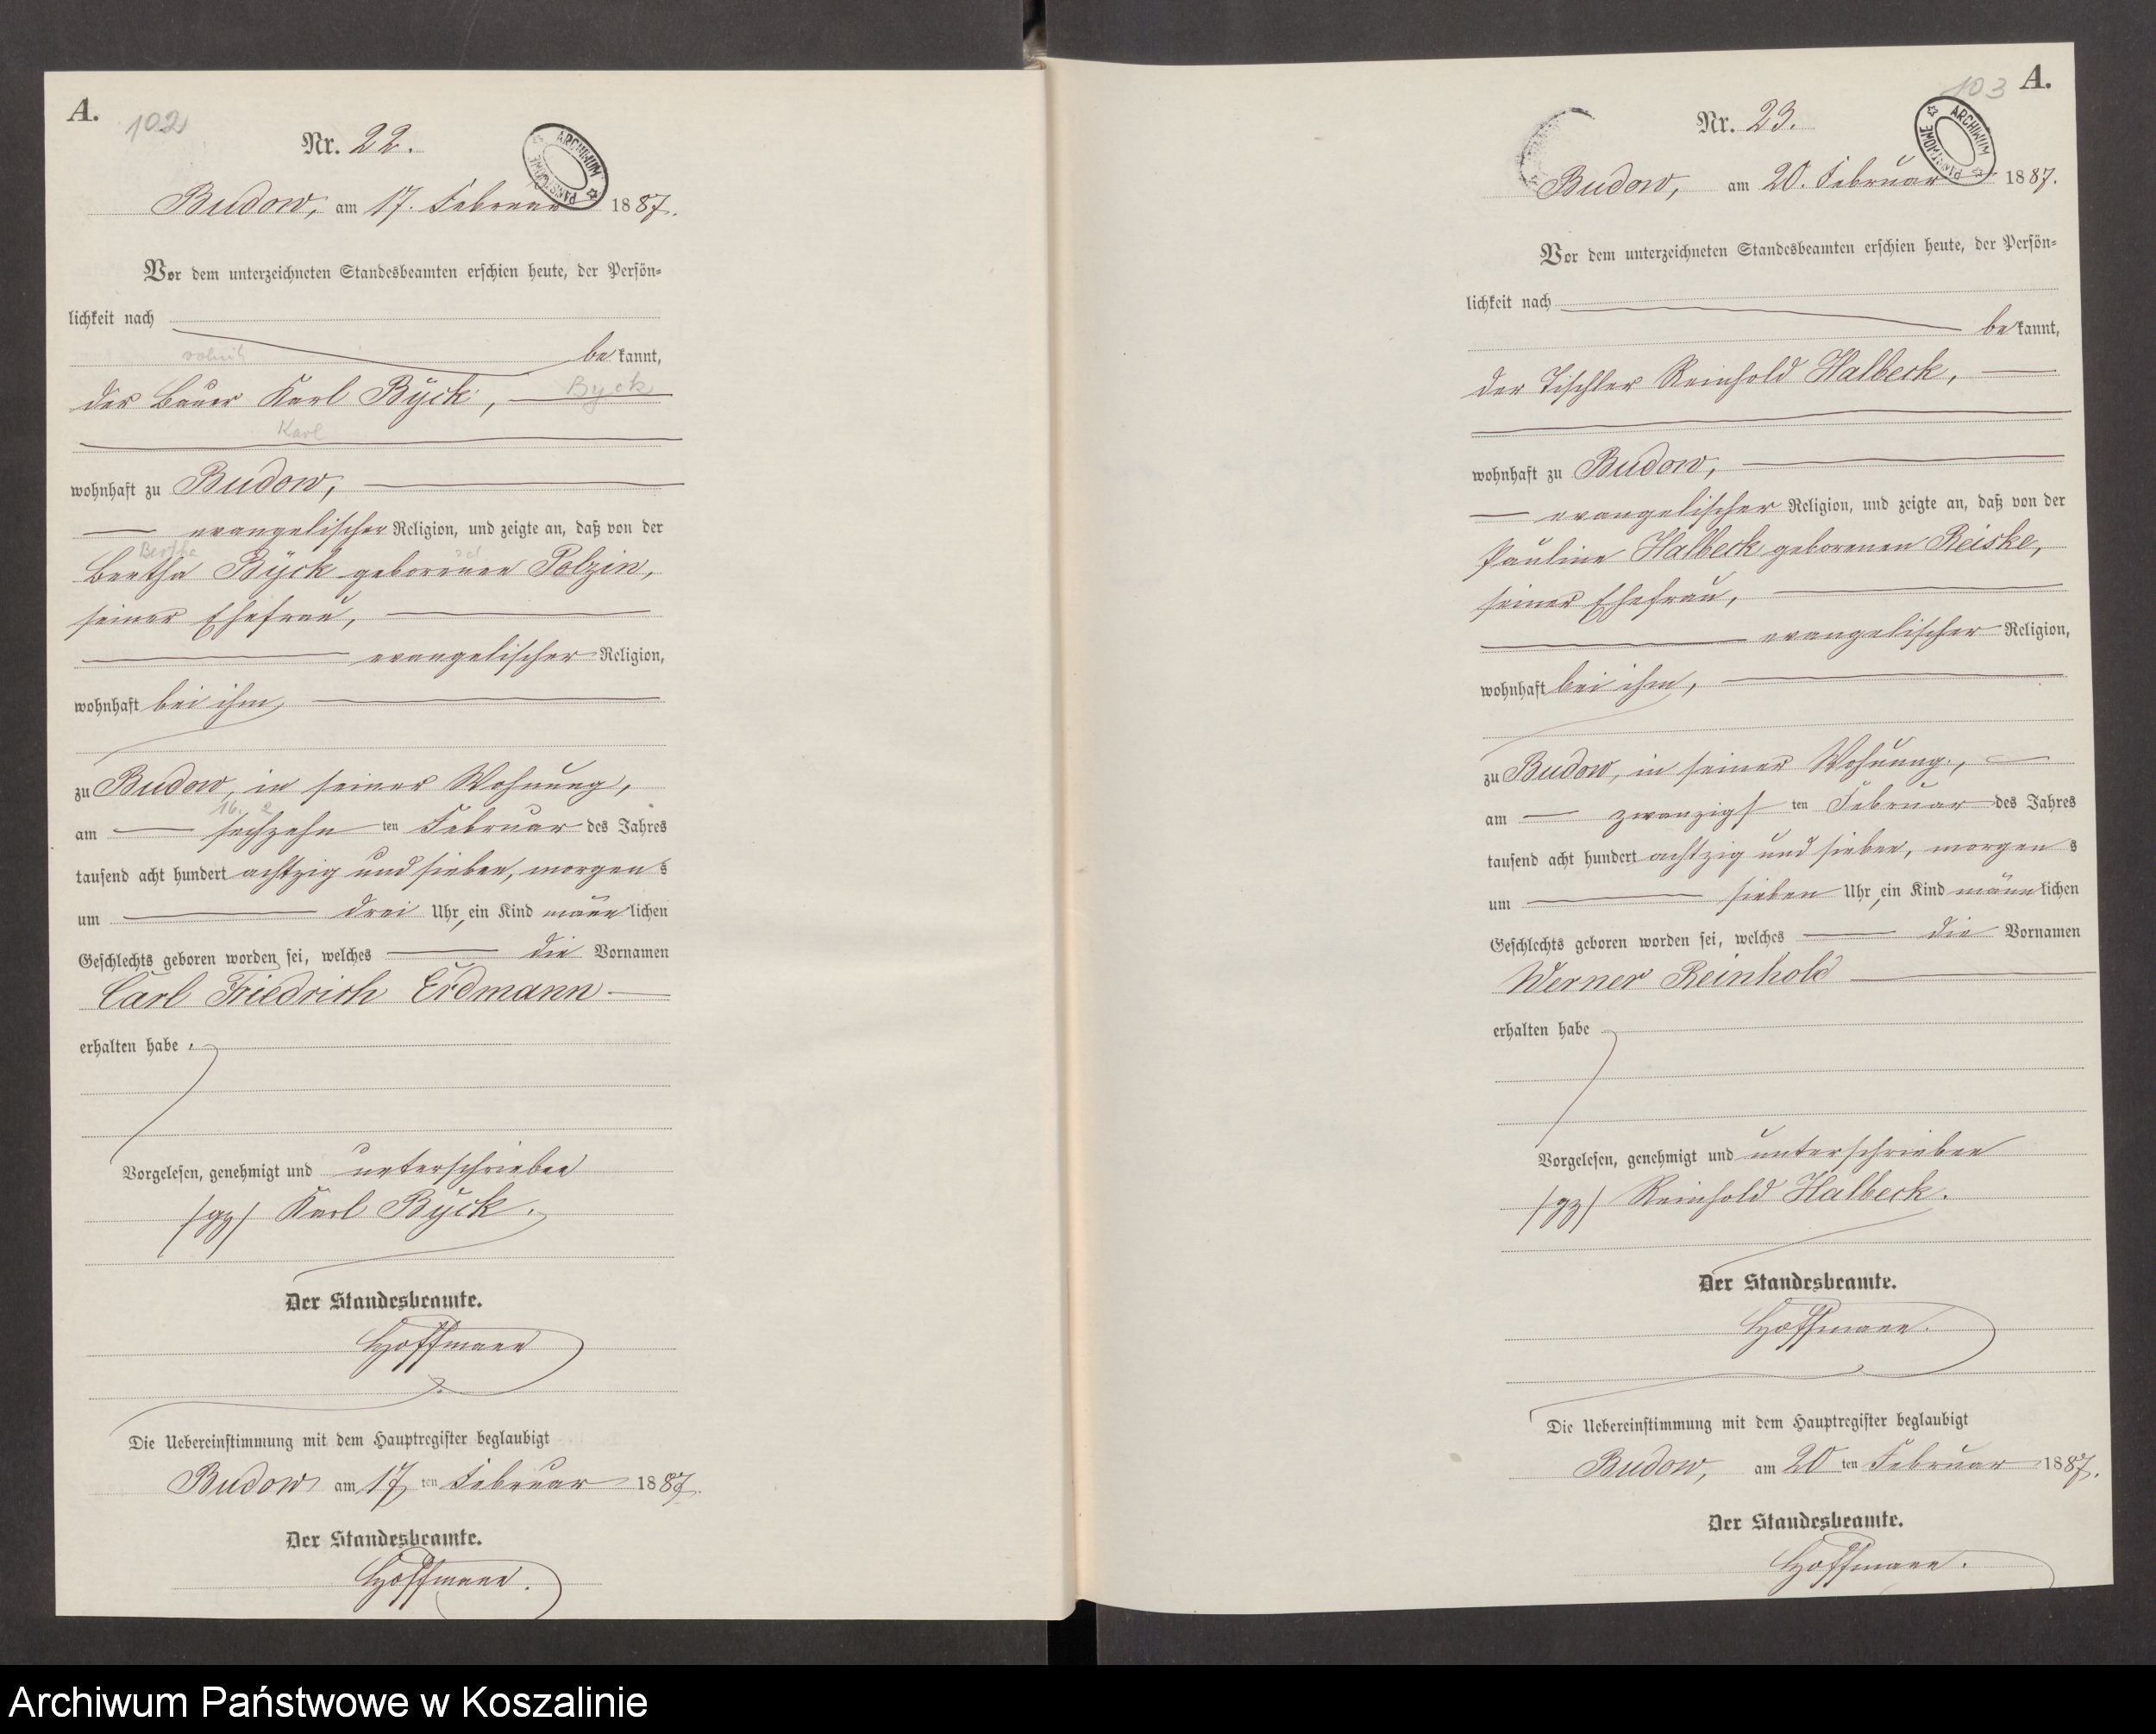 A.
102
Nr. 22.
ARCHIWUM PAŃSTWOWE
Budow, am 17. Februar 1887.
Vor dem unterzeichneten Standesbeamten erschien heute, der Persön-
lichkeit nach
rolnik
bekannt,
der Bauer Karl Byck, Byck
Karl
wohnhaft zu Budow,
evangelischer Religion, und zeigte an, daß von der
Bertha
Bertha Byck geborenen Polzin,
seiner Ehefrau,
evangelischer Religion,
wohnhaft bei ihm,
zu Budow, in seiner Wohnung,
16. 2
am sechzehn ten Februar des Jahres
tausend acht hundert achtzig und sieben, morgens
um drei Uhr, ein Kind männlichen
Geschlechts geboren worden sei, welches die Vornamen
Carl Friedrich Erdmann
erhalten habe.
Vorgelesen, genehmigt und unterschrieben
/gz/ Karl Byck.
Der Standesbeamte.
Hoffmann
Die Uebereinstimmung mit dem Hauptregister beglaubigt
Budow am 17ten Februar 1887.
Der Standesbeamte.
Hoffmann.
103 A.
Nr. 23.
ARCHIWUM PAŃSTWOWE
Budow, am 20. Februar 1887.
Vor dem unterzeichneten Standesbeamten erschien heute, der Persön-
lichkeit nach
bekannt,
der Tischler Reinhold Halbeck,
wohnhaft zu Budow,
evangelischer Religion, und zeigte an, daß von der
Pauline Halbeck geborenen Reiske,
seiner Ehefrau,
evangelischer Religion,
wohnhaft bei ihm,
zu Budow, in seiner Wohnung,
am zwanzigsten Februar des Jahres
tausend acht hundert achtzig und sieben, morgens
um sieben Uhr, ein Kind männlichen
Geschlechts geboren worden sei, welches die Vornamen
Werner Reinhold
erhalten habe
Vorgelesen, genehmigt und unterschrieben
/gz/ Reinhold Halbeck.
Der Standesbeamte.
Hoffmann.
Die Uebereinstimmung mit dem Hauptregister beglaubigt
Budow, am 20ten Februar 1887.
Der Standesbeamte.
Hoffmann.
Archiwum Państwowe w Koszalinie